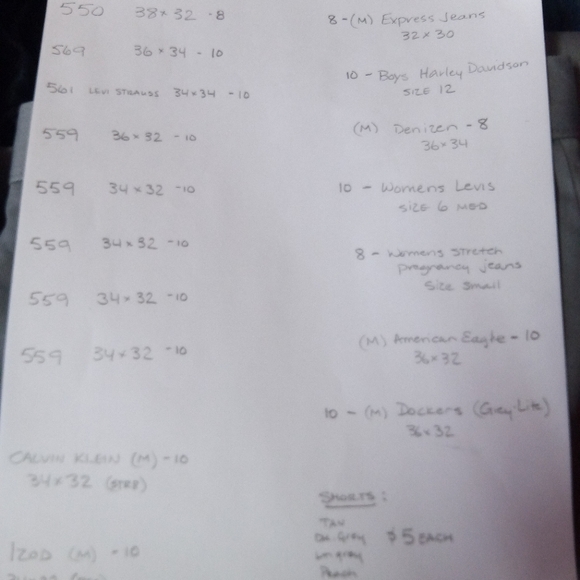 550 38 x 32 - 8
569 36 x 34 - 10
561 LEVI STRAUSS 34x34 - 10
559 36 x 32 - 10
559 34 x 32 - 10
559 34 x 32 - 10
559 34 x 32 - 10
559 34 x 32 - 10
CALVIN KLEIN (M) - 10
34 x 32 (STR8)
IZOD (M) - 10
8 - (M) Express Jeans
32 x 30
10 - Boys Harley Davidson
SIZE 12
(M) Denizen - 8
36 x 34
10 - Womens Levis
SIZE 6 MED
8 - Womens Stretch
pregnancy jeans
Size Small
(M) American Eagle - 10
36 x 32
10 - (M) Dockers (Grey-Lite)
36 x 32
SHORTS:
TAN
DK. Grey $5 EACH
Lt. gray
Peach